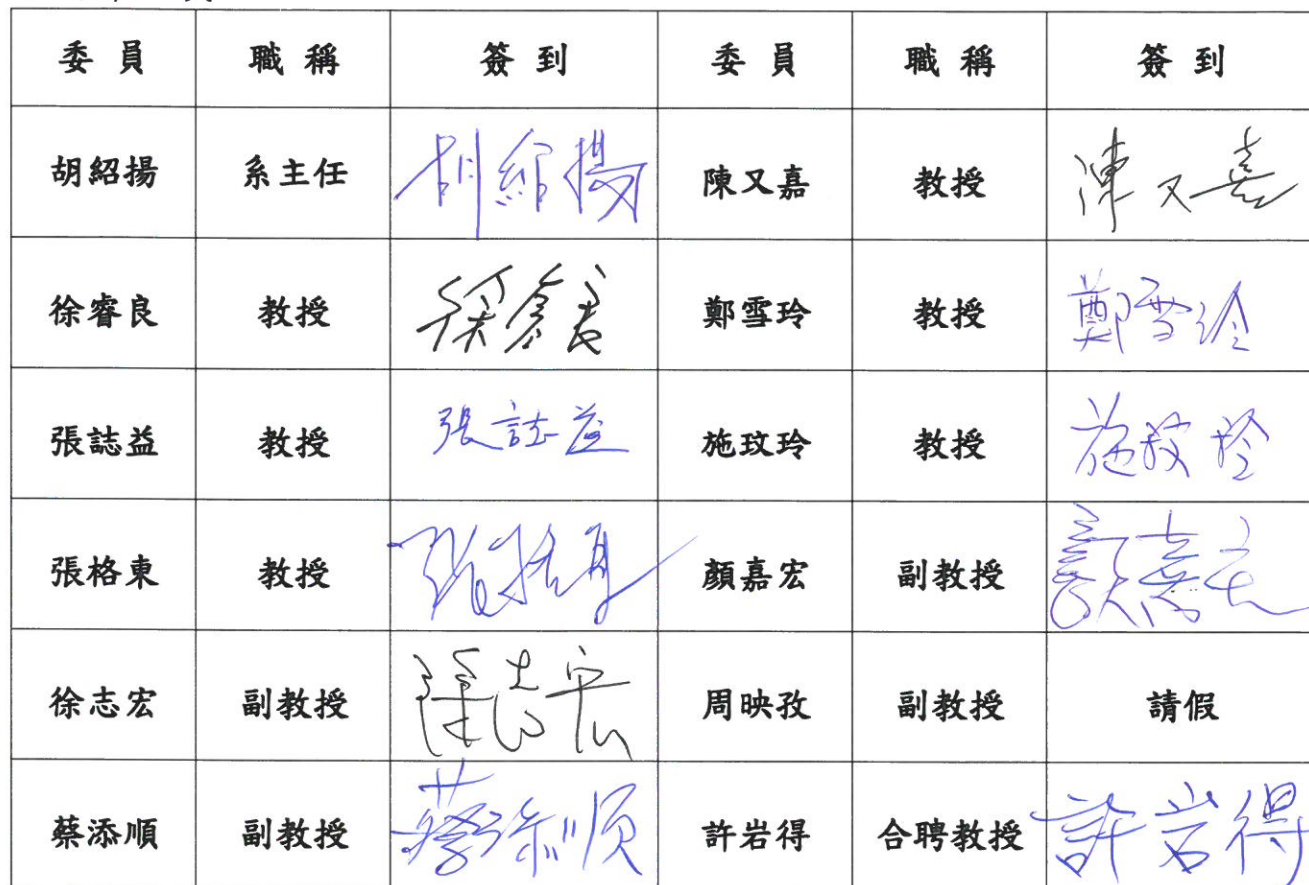 委員 職稱 簽到 委員 職稱 簽到
胡紹揚 系主任 胡紹揚 陳又嘉 教授 陳又嘉
徐睿良 教授 徐睿良 鄭雪玲 教授 鄭雪玲
張誌益 教授 張誌益 施玟玲 教授 施玟玲
張格東 教授 張格東 顏嘉宏 副教授 顏嘉宏
徐志宏 副教授 徐志宏 周映孜 副教授 請假
蔡添順 副教授 蔡添順 許岩得 合聘教授 許岩得